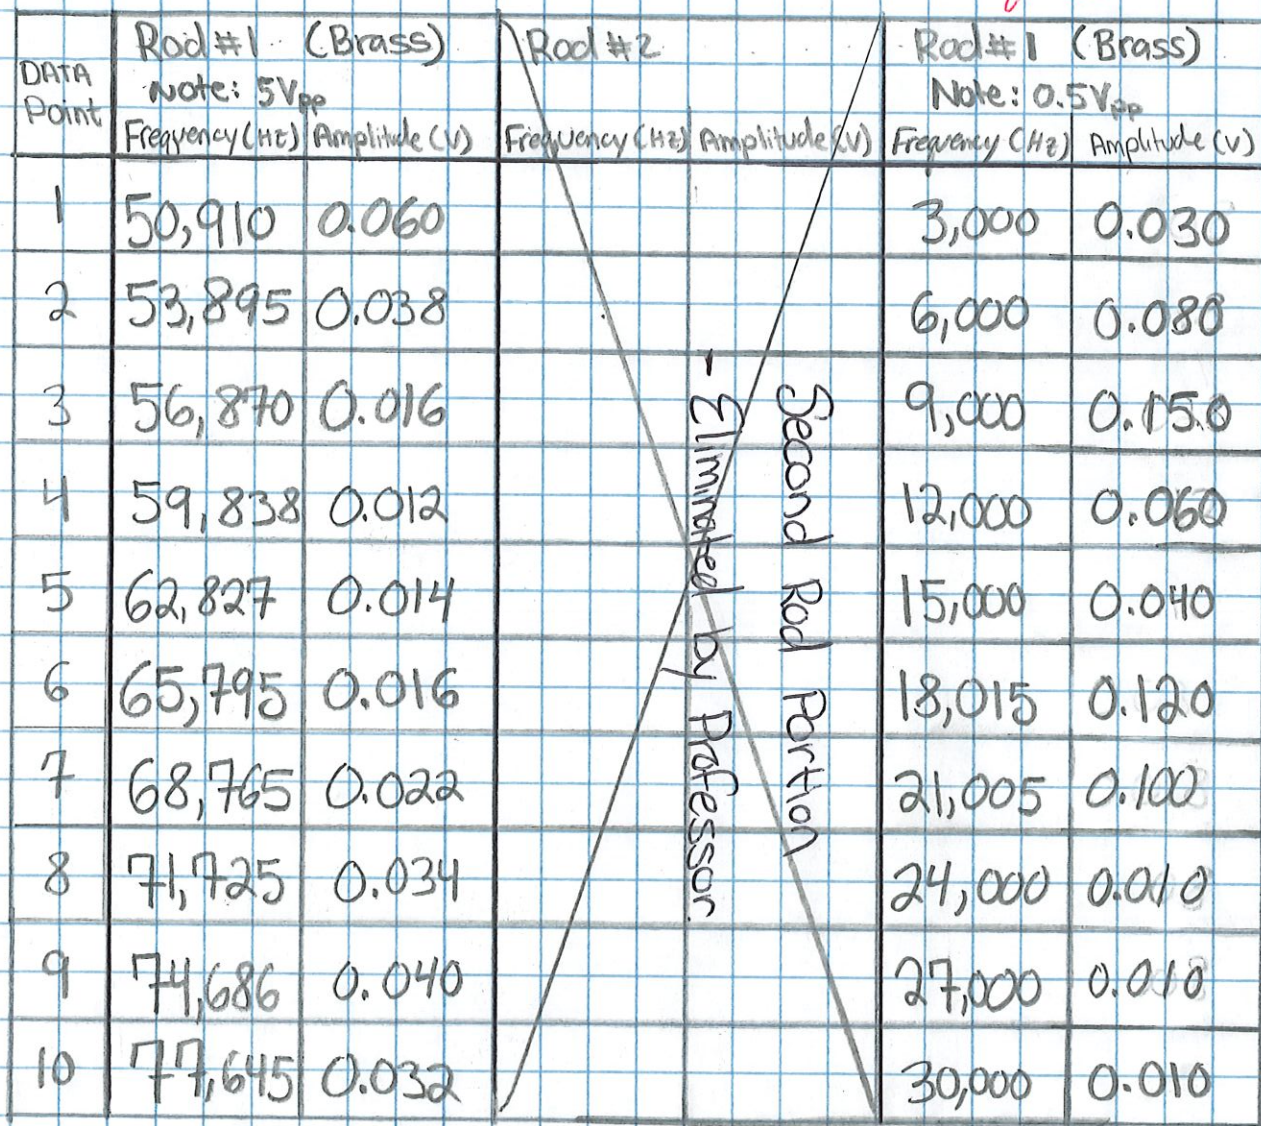 DATA Point
Rod #1 (Brass)
Note: 5Vpp
Frequency (Hz) Amplitude (V)
Rod #2
Frequency (Hz) Amplitude (V)
Rod #1 (Brass)
Note: 0.5Vpp
Frequency (Hz) Amplitude (V)
1 50,910 0.060 3,000 0.030
2 53,895 0.038 6,000 0.080
3 56,870 0.016 9,000 0.150
4 59,838 0.012 12,000 0.060
5 62,827 0.014 15,000 0.040
6 65,795 0.016 18,015 0.120
7 68,765 0.022 21,005 0.100
8 71,725 0.034 24,000 0.010
9 74,686 0.040 27,000 0.010
10 77,645 0.032 30,000 0.010
Second Rod Portion
- Eliminated by Professor.